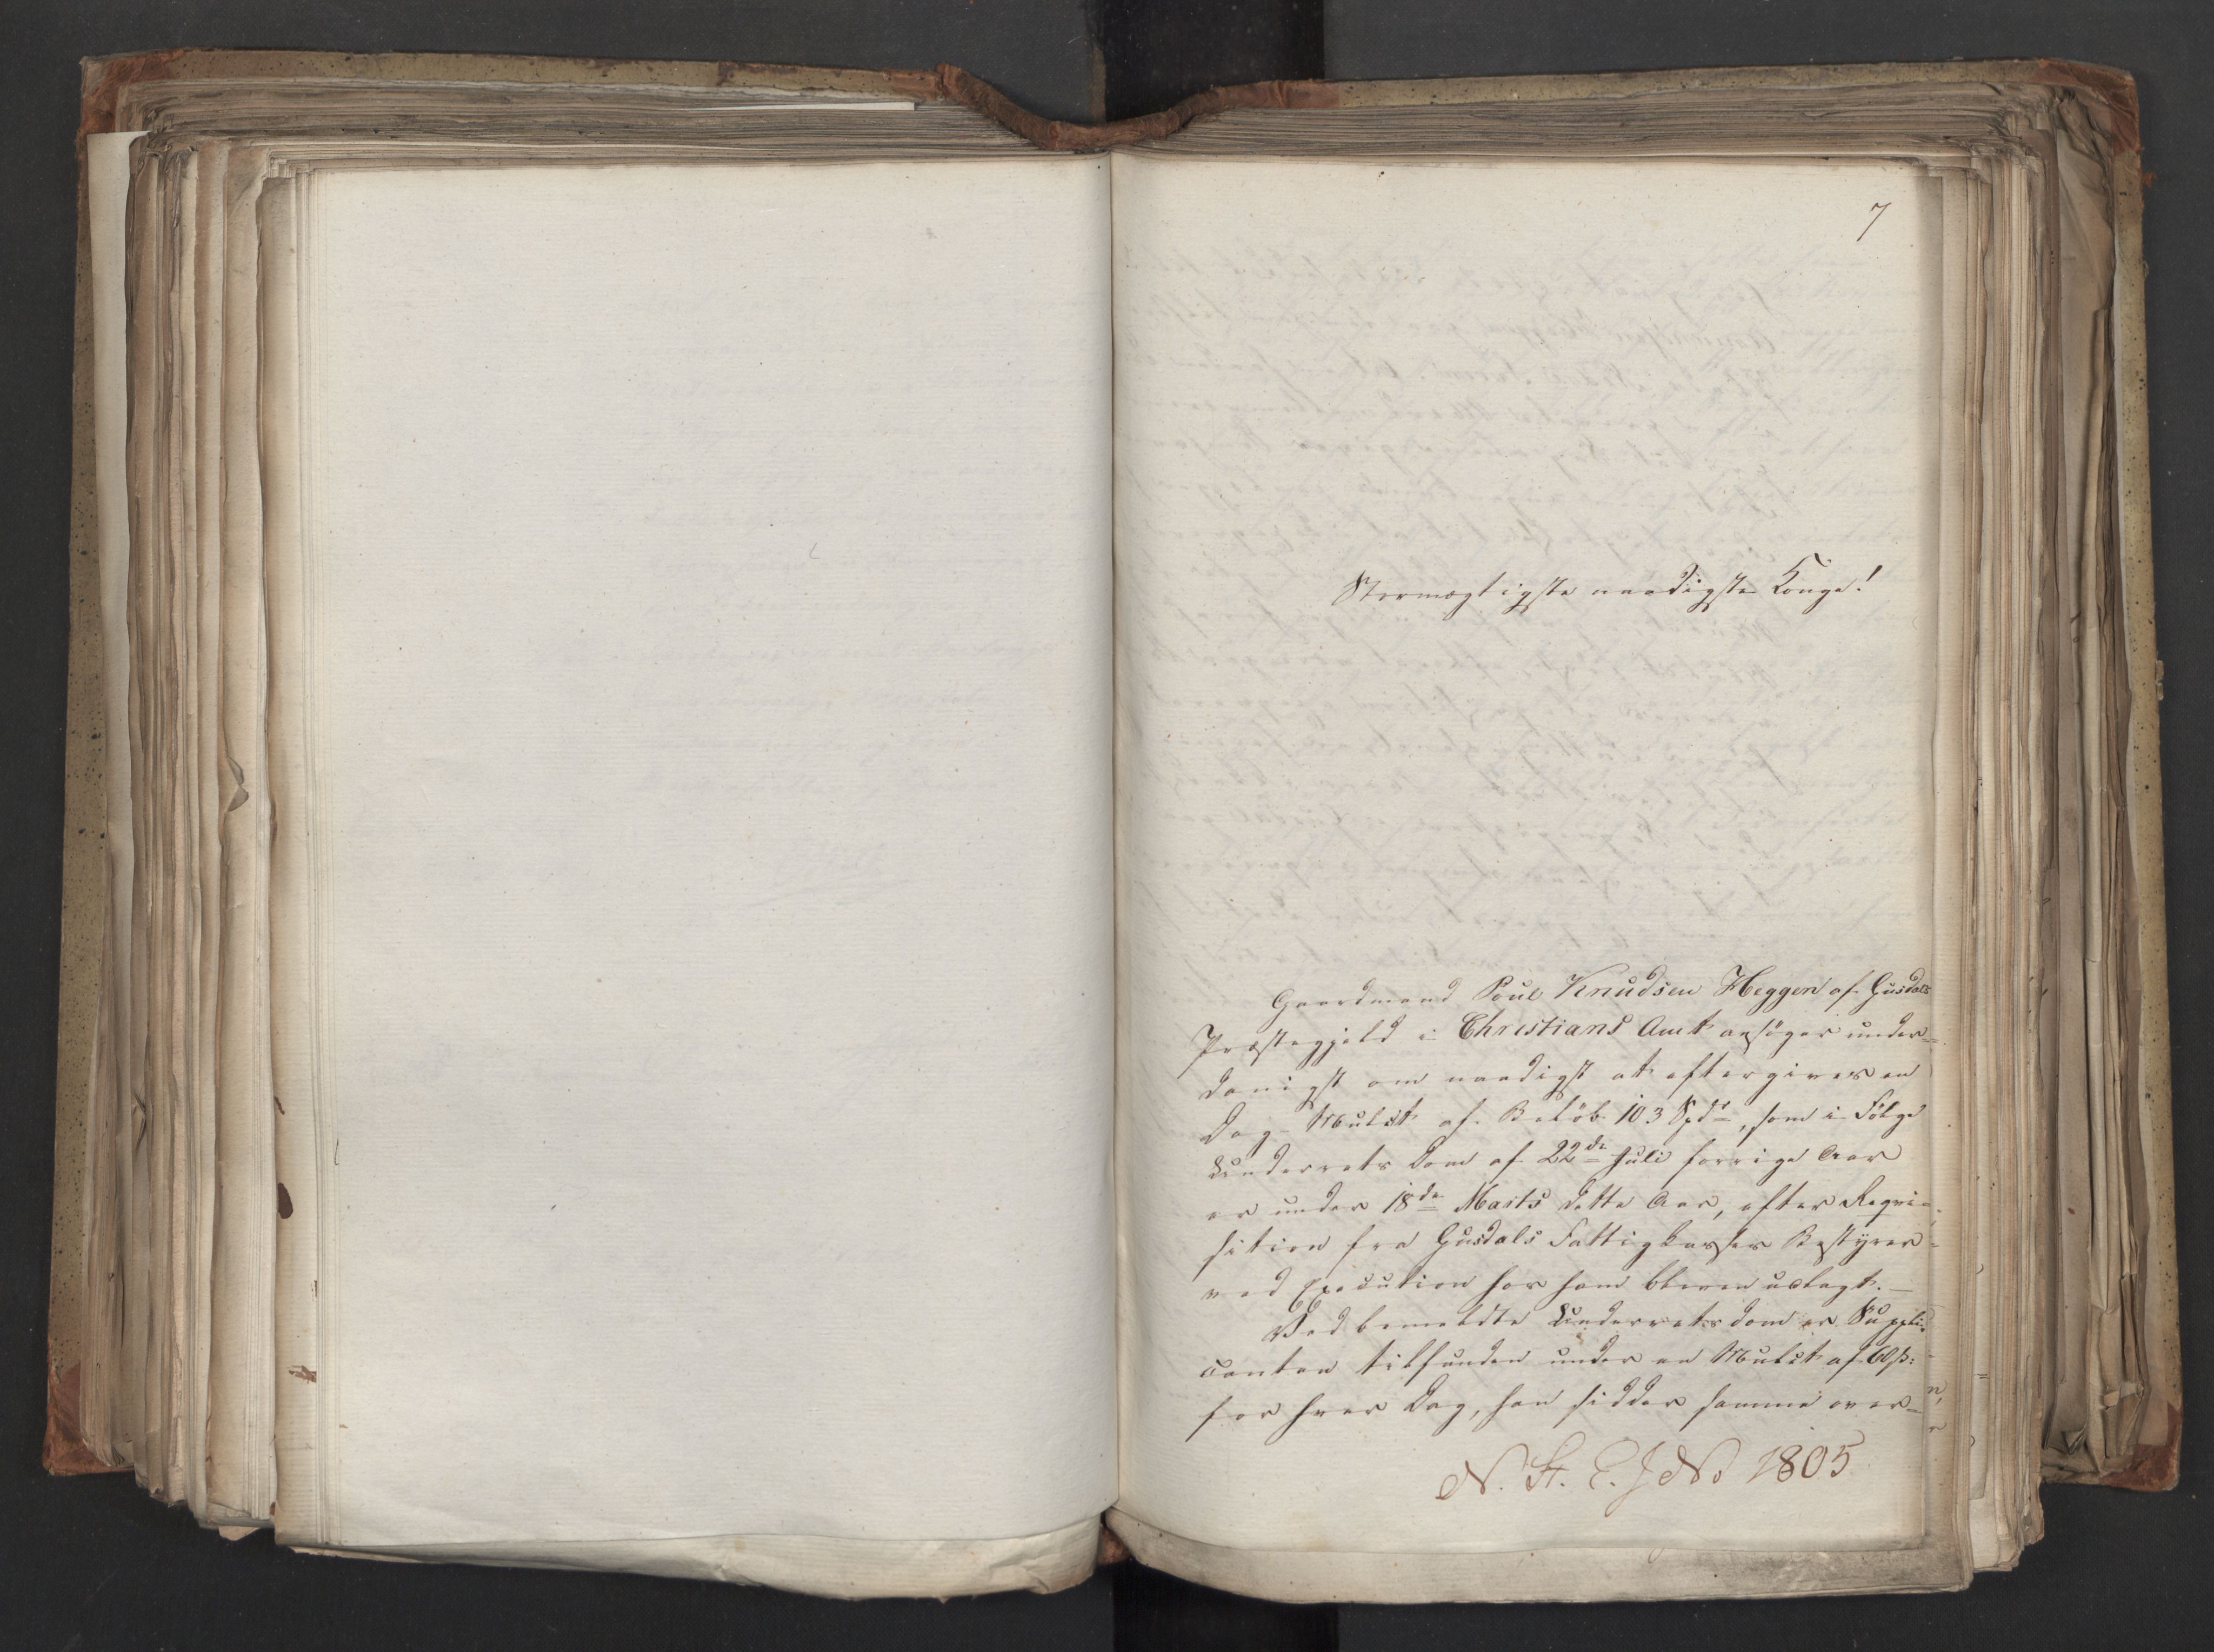 7
Stormægtigste naadigste Konge!
Gaardmand Poul Knudsen Heggen af Gusdals
Præstegjeld i Christians Amt ansøger under-
danigst om naadigst at eftergives en
Dag-Mulct af Beløb 103 Spdr, som i Følge
Underrets Dom af 22de Juli forrige Aar
er under 18de Marts dette Aar, efter Reqvi-
sition fra Gusdals Fattigkasses Bestyrer
ved Execution hos ham bleven udlagt. —
Ved bemeldte Underretsdom er Suppli-
canten tilfunden under en Mulct af 60 s:
for hver Dag, han sidder samme over-
N. St. E. J No 1805